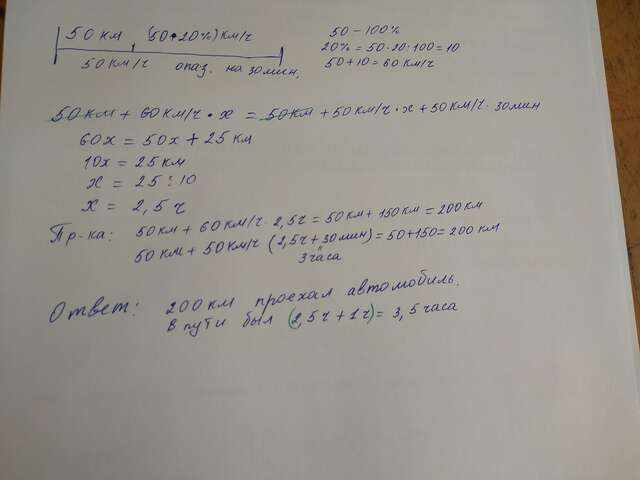 50 км (50+20%) км/ч
50 км/ч опаз. на 30 мин.
50 – 100%
20% = 50·20:100=10
50+10=60 км/ч
50 км + 60 км/ч · x = 50 км + 50 км/ч · x + 50 км/ч · 30 мин
60x = 50x + 25 км
10x = 25 км
x = 25 : 10
x = 2,5 ч
Пр-ка: 50 км + 60 км/ч · 2,5 ч = 50 км + 150 км = 200 км
50 км + 50 км/ч (2,5 ч + 30 мин) = 50 + 150 = 200 км
3 часа
Ответ: 200 км проехал автомобиль.
В пути был (2,5 ч + 1 ч) = 3,5 часа